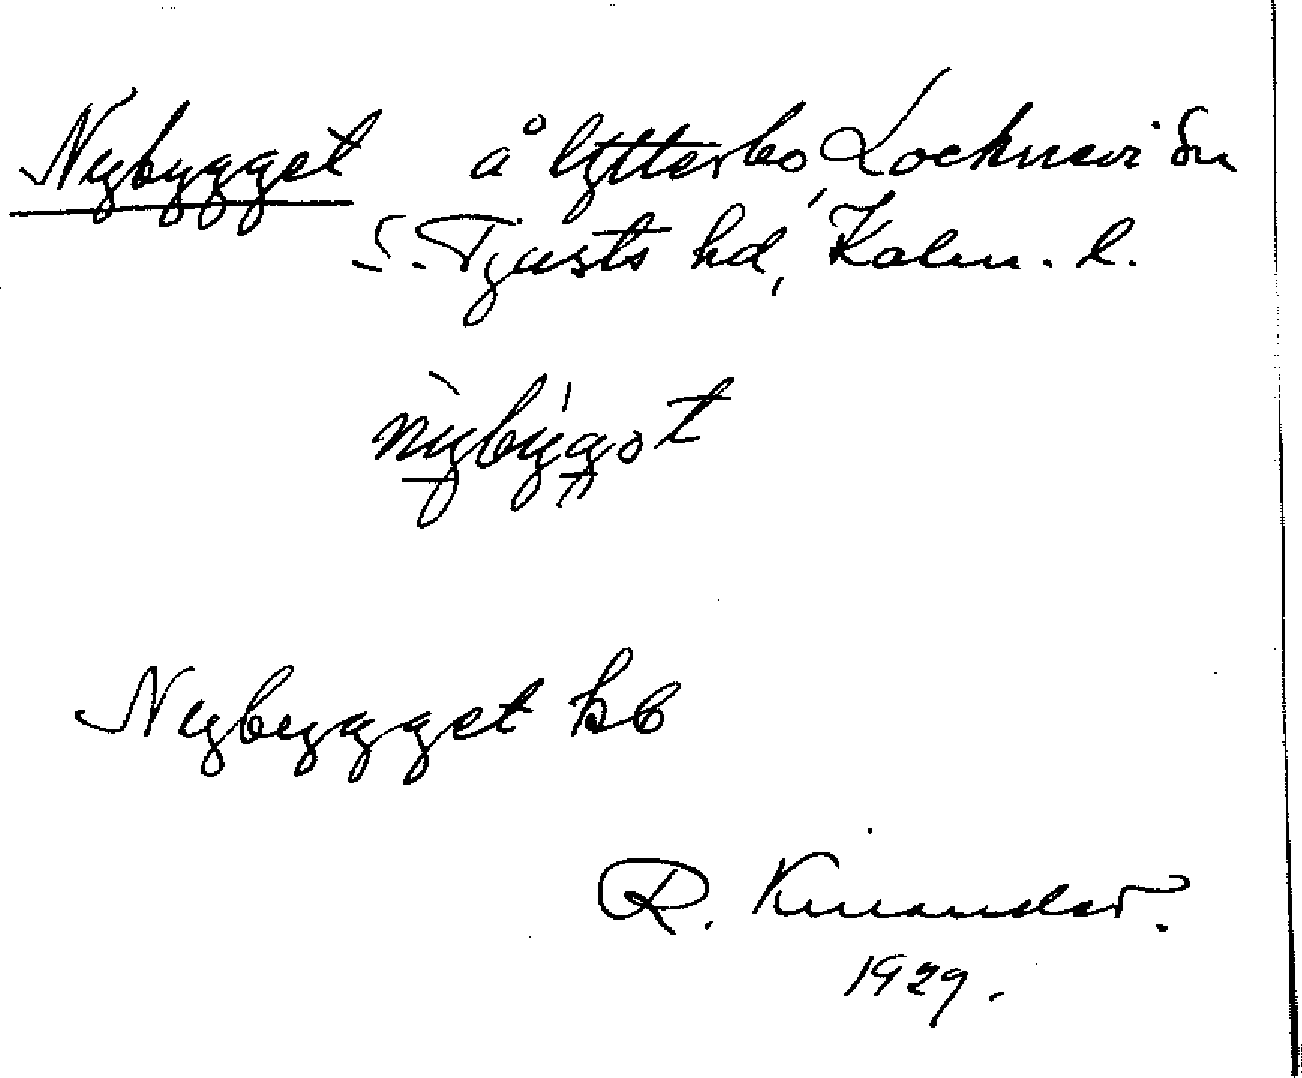 Nybygget å Ytterbo, Locknevi sn
S. Tjusts hd, Kalm. l.
nỳbýggot
Nybygget kb
R. Kinander.
1929.